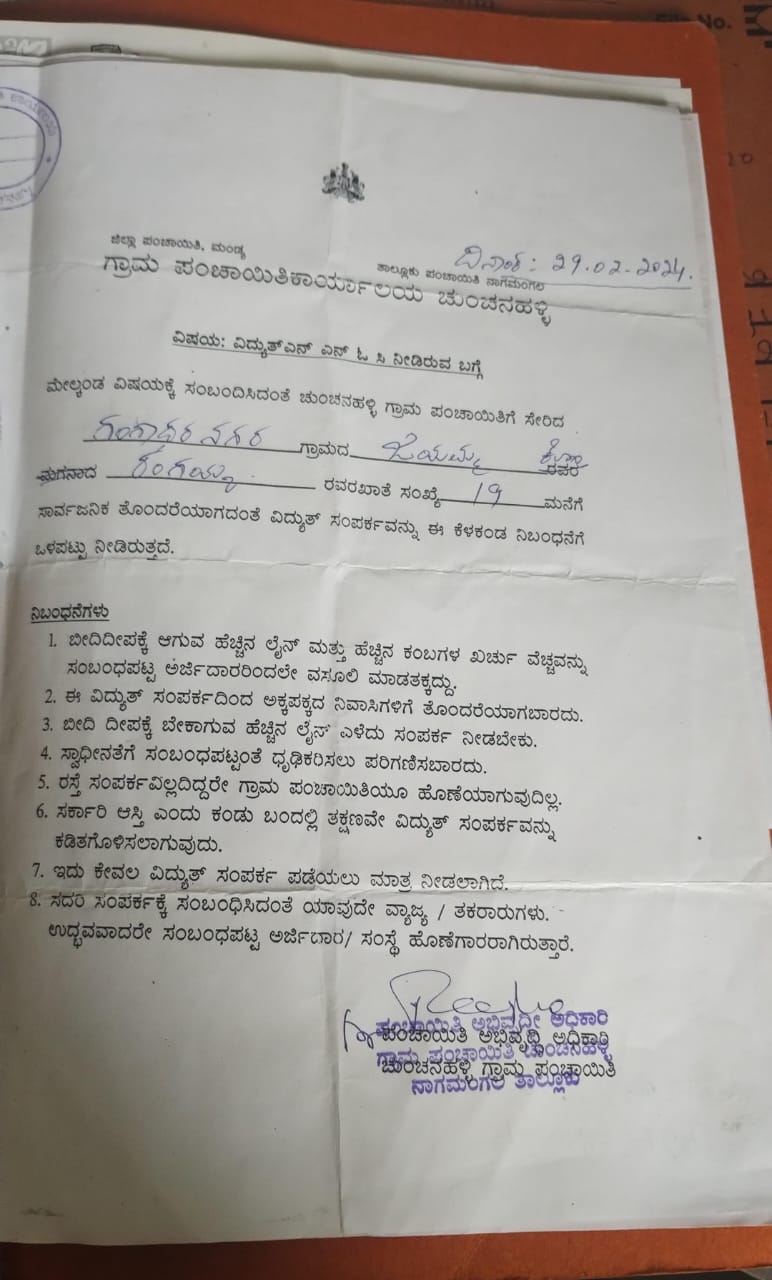 No.
ಜಿಲ್ಲಾ ಪಂಚಾಯಿತಿ, ಮಂಡ್ಯ
ದಿನಾಂಕ: 29.02.2024.
ತಾಲ್ಲೂಕು ಪಂಚಾಯಿತಿ ನಾಗಮಂಗಲ
ಗ್ರಾಮ ಪಂಚಾಯಿತಿಕಾರ್ಯಾಲಯ ಚುಂಚನಹಳ್ಳಿ
ವಿಷಯ: ವಿದ್ಯುತ್ಎನ್ ಎನ್ ಓ ಸಿ ನೀಡಿರುವ ಬಗ್ಗೆ
ಮೇಲ್ಕಂಡ ವಿಷಯಕ್ಕೆ ಸಂಬಂದಿಸಿದಂತೆ ಚುಂಚನಹಳ್ಳಿ ಗ್ರಾಮ ಪಂಚಾಯಿತಿಗೆ ಸೇರಿದ
ಗಂಗಾಧರ ನಗರ ಗ್ರಾಮದ ಜಯಮ್ಮ ಕೋಂ ರವರ
ಮಗನಾದ ರಂಗಯ್ಯ ರವರಖಾತೆ ಸಂಖ್ಯೆ 19 ಮನೆಗೆ
ಸಾರ್ವಜನಿಕ ತೊಂದರೆಯಾಗದಂತೆ ವಿದ್ಯುತ್ ಸಂಪರ್ಕವನ್ನು ಈ ಕೆಳಕಂಡ ನಿಬಂಧನೆಗೆ
ಒಳಪಟ್ಟು ನೀಡಿರುತ್ತದೆ.
ನಿಬಂಧನೆಗಳು
1. ಬೀದಿದೀಪಕ್ಕೆ ಆಗುವ ಹೆಚ್ಚಿನ ಲೈನ್ ಮತ್ತು ಹೆಚ್ಚಿನ ಕಂಬಗಳ ಖರ್ಚು ವೆಚ್ಚವನ್ನು
ಸಂಬಂಧಪಟ್ಟ ಅರ್ಜಿದಾರರಿಂದಲೇ ವಸೂಲಿ ಮಾಡತಕ್ಕದ್ದು.
2. ಈ ವಿದ್ಯುತ್ ಸಂಪರ್ಕದಿಂದ ಅಕ್ಕಪಕ್ಕದ ನಿವಾಸಿಗಳಿಗೆ ತೊಂದರೆಯಾಗಬಾರದು.
3. ಬೀದಿ ದೀಪಕ್ಕೆ ಬೇಕಾಗುವ ಹೆಚ್ಚಿನ ಲೈನ್ ಎಳೆದು ಸಂಪರ್ಕ ನೀಡಬೇಕು.
4. ಸ್ವಾಧೀನತೆಗೆ ಸಂಬಂಧಪಟ್ಟಂತೆ ಧೃಢಿಕರಿಸಲು ಪರಿಗಣಿಸಬಾರದು.
5. ರಸ್ತೆ ಸಂಪರ್ಕವಿಲ್ಲದಿದ್ದರೇ ಗ್ರಾಮ ಪಂಚಾಯಿತಿಯೂ ಹೊಣೆಯಾಗುವುದಿಲ್ಲ.
6. ಸರ್ಕಾರಿ ಆಸ್ತಿ ಎಂದು ಕಂಡು ಬಂದಲ್ಲಿ ತಕ್ಷಣವೇ ವಿದ್ಯುತ್ ಸಂಪರ್ಕವನ್ನು
ಕಡಿತಗೊಳಿಸಲಾಗುವುದು.
7. ಇದು ಕೇವಲ ವಿದ್ಯುತ್ ಸಂಪರ್ಕ ಪಡೆಯಲು ಮಾತ್ರ ನೀಡಲಾಗಿದೆ.
8. ಸದರಿ ಸಂಪರ್ಕಕ್ಕೆ ಸಂಬಂಧಿಸಿದಂತೆ ಯಾವುದೇ ವ್ಯಾಜ್ಯ / ತಕರಾರುಗಳು.
ಉದ್ಭವವಾದರೇ ಸಂಬಂಧಪಟ್ಟ ಅರ್ಜಿದಾರ/ ಸಂಸ್ಥೆ ಹೊಣೆಗಾರರಾಗಿರುತ್ತಾರೆ.
ಪಂಚಾಯಿತಿ ಅಭಿವೃದ್ಧಿ ಅಧಿಕಾರಿ
ಪಂಚಾಯಿತಿ ಅಭಿವೃದ್ಧಿ ಅಧಿಕಾರಿ
ಗ್ರಾಮ ಪಂಚಾಯಿತಿ ಚುಂಚನಹಳ್ಳಿ
ಚುಂಚನಹಳ್ಳಿ ಗ್ರಾಮ ಪಂಚಾಯಿತಿ
ನಾಗಮಂಗಲ ತಾಲ್ಲೂಕು